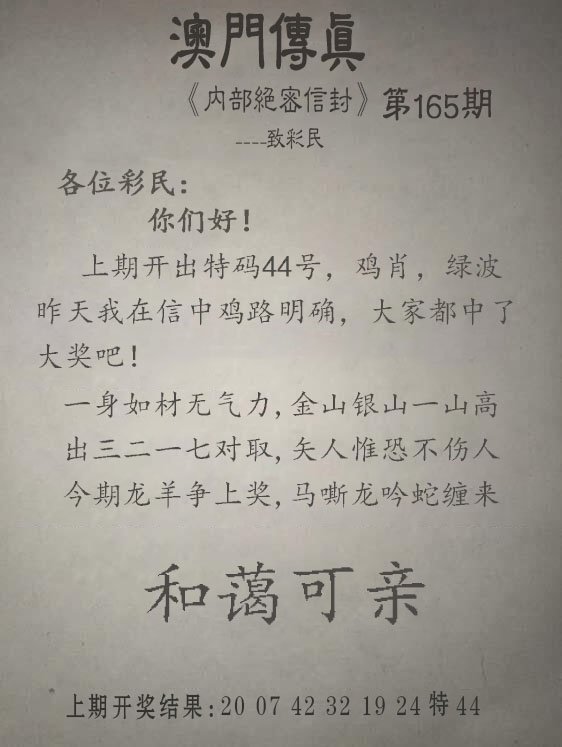 澳門傳眞
《内部絕密信封》第165期
----致彩民
各位彩民：
你们好！
上期开出特码44号，鸡肖，绿波
昨天我在信中鸡路明确，大家都中了
大奖吧！
一身如材无气力,金山银山一山高
出三二一七对取,矢人惟恐不伤人
今期龙羊争上奖,马嘶龙吟蛇缠来
和蔼可亲
上期开奖结果:20 07 42 32 19 24特44